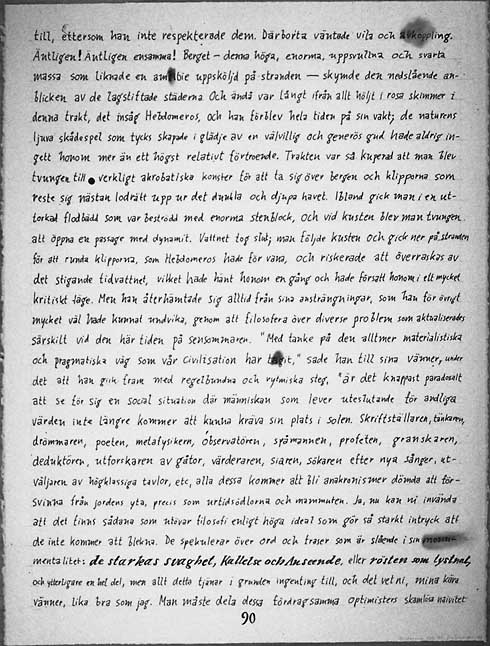 till, eftersom han inte respekterade dem. Därborta väntade vila och avkoppling.
Äntligen! Äntligen ensamma! Berget – denna höga, enorma, uppsvullna och svarta
massa som liknade en amöbie uppsköljd på stranden — skymde den nedslående an-
blicken av de lagstiftade städerna Och ändå var långt ifrån allt höljt i rosa skimmer i
denna trakt, det insåg Hebdomeros, och han förblev hela tiden på sin vakt; de naturens
ljuva skådespel som tycks skapade i glädje av en välvillig och generös gud hade aldrig in-
gett honom mer än ett högst relativt förtroende. Trakten var så kuperad att man blev
tvungen till verkligt akrobatiska konster för att ta sig över bergen och klipporna som
reste sig nästan lodrätt upp ur det dunkla och djupa havet. Ibland gick man i en ut-
torkad flodbädd som var beströdd med enorma stenblock, och vid kusten blev man tvungen
att öppna en passage med dynamit. Vattnet tog slut; man följde kusten och gick ner på stranden
för att runda klipporna, som Hebdomeros hade för vana, och riskerade att överraskas av
det stigande tidvattnet, vilket hade hänt honom en gång och hade försatt honom i ett mycket
kritiskt läge. Men han återhämtade sig alltid från sina ansträngningar, som han för övrigt
mycket väl hade kunnat undvika, genom att filosofera över diverse problem som aktualiserades
särskilt vid den här tiden på sensommaren. "Med tanke på den alltmer materialistiska
och pragmatiska väg som vår civilisation har tagit," sade han till sina vänner, under
det att han gick fram med regelbundna och rytmiska steg, "är det knappast paradoxalt
att se för sig en social situation där människan som lever uteslutande för andliga
värden inte längre kommer att kunna kräva sin plats i solen. Skriftställaren, tänkaren,
drömmaren, poeten, metafysikern, observatören, spåmannen, profeten, granskaren,
deduktören, utforskaren av gåtor, värderaren, siaren, sökaren efter nya sånger, ut-
väljaren av högklassiga tavlor, etc, alla dessa kommer att bli anakronismer dömda att för-
svinna från jordens yta, precis som urtidsödlorna och mammuten. Ja, nu kan ni invända
att det finns sådana som utövar filosofi enligt höga ideal som gör så starkt intryck att
de inte kommer att blekna. De spekulerar över ord och fraser som är slående i sin
mentalitet: de starkas svaghet, Kallelse och Anseende, eller rösten som tystnat,
och ytterligare en hel del, men allt detta tjänar i grunden ingenting till, och det vet ni, mina kära
vänner, lika bra som jag. Man måste dela dessa fördragsamma optimisters skamlösa naivitet
90